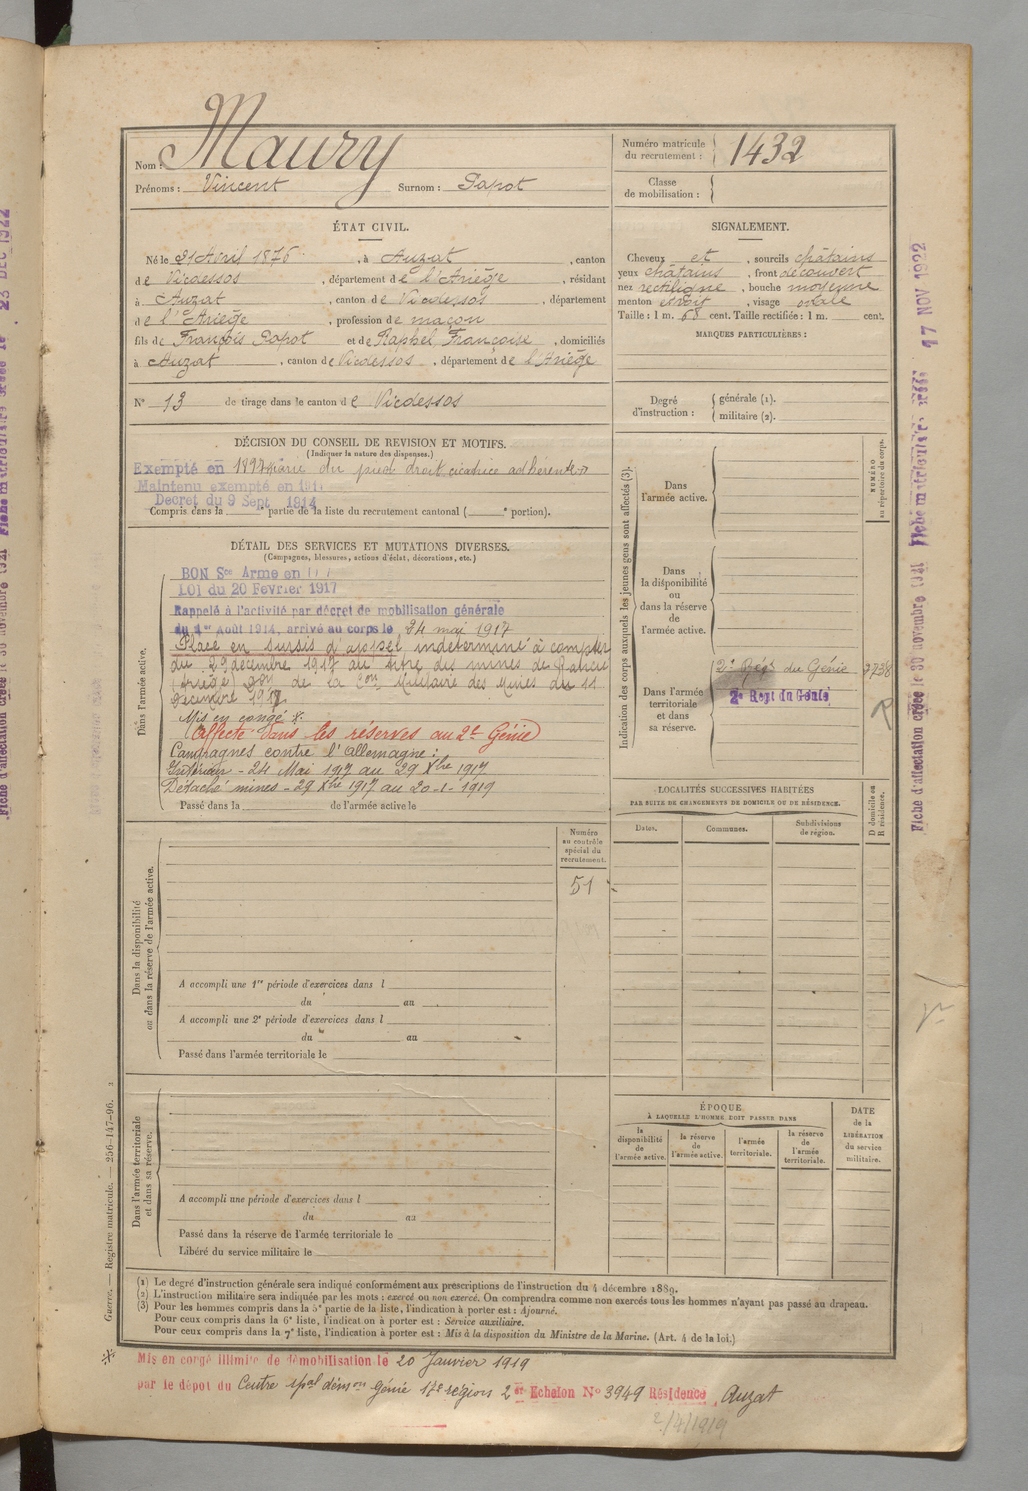 Nom : Maury
Prénoms : Vincent Surnom : Papot
Numéro matricule du recrutement : 1432
Classe de mobilisation :
ÉTAT CIVIL.
Né le 21 Avril 1876, à Auzat, canton
de Vicdessos, département de l'Ariège, résidant
à Auzat, canton de Vicdessos, département
de l'Ariège, profession de maçon
fils de François Papot et de Raphel Françoise, domiciliés
à Auzat, canton de Vicdessos, département de l'Ariège
N° 13 de tirage dans le canton de Vicdessos
SIGNALEMENT.
Cheveux et, sourcils châtains
yeux châtains, front découvert
nez rectiligne, bouche moyenne
menton étroit, visage ovale
Taille : 1 m. 68 cent. Taille rectifiée : 1 m. cent.
MARQUES PARTICULIÈRES :
Degré d'instruction : générale (1).
militaire (2).
DÉCISION DU CONSEIL DE REVISION ET MOTIFS.
(Indiquer la nature des dispenses.)
Exempté en 1897 du pied droit cicatrice adhérente
Maintenu exempté en 191
Decret du 9 Sept 1914
Compris dans la partie de la liste du recrutement cantonal ( portion).
DÉTAIL DES SERVICES ET MUTATIONS DIVERSES.
(Campagnes, blessures, actions d'éclat, décorations, etc.)
Dans l'armée active.
BON Sce Armé en
LOI du 20 Fevrier 1917
Rappelé à l'activité par décret de mobilisation générale
du 1er Août 1914, arrivé au corps le 24 mai 1917
Placé en sursis d'appel indeterminé à compter
du 29 décembre 1917 au titre des mines de Rancié
(Ariège) de la Militaire des Mines du 11
décembre 1917
Mis en congé *
Affecté dans les réserves au 2e Génie
Campagnes contre l'Allemagne :
Intérieur - 24 Mai 1917 au 29 Xbre 1917
Détaché mines - 29 Xbre 1917 au 20-1-1919
Passé dans la de l'armée active le
Indication des corps auxquels les jeunes gens sont affectés (3).
NUMÉRO au répertoire du corps.
Dans l'armée active.
Dans la disponibilité ou dans la réserve de l'armée active.
Dans l'armée territoriale et dans sa réserve.
2e Régt du Génie 7738
2e Regt du Génie
R
LOCALITÉS SUCCESSIVES HABITÉES
PAR SUITE DE CHANGEMENTS DE DOMICILE OU DE RÉSIDENCE.
D domicile ou R résidence.
Dates. Communes. Subdivisions de région.
Numéro au contrôle spécial du recrutement.
51
Dans la disponibilité ou dans la réserve de l'armée active.
A accompli une 1re période d'exercices dans l
du au
A accompli une 2e période d'exercices dans l
du au
Passé dans l'armée territoriale le
Dans l'armée territoriale et dans sa réserve.
A accompli une période d'exercices dans l
du au
Passé dans la réserve de l'armée territoriale le
Libéré du service militaire le
ÉPOQUE
À LAQUELLE L'HOMME DOIT PASSER DANS
la disponibilité de l'armée active.
la réserve de l'armée active.
l'armée territoriale.
la réserve de l'armée territoriale.
DATE de la LIBÉRATION du service militaire.
(1) Le degré d'instruction générale sera indiqué conformément aux prescriptions de l'instruction du 4 décembre 1889.
(2) L'instruction militaire sera indiquée par les mots : exercé ou non exercé. On comprendra comme non exercés tous les hommes n'ayant pas passé au drapeau.
(3) Pour les hommes compris dans la 5e partie de la liste, l'indication à porter est : Ajourné.
Pour ceux compris dans la 6e liste, l'indication à porter est : Service auxiliaire.
Pour ceux compris dans la 7e liste, l'indication à porter est : Mis à la disposition du Ministre de la Marine. (Art. 4 de la loi.)
* Mis en congé illimité de démobilisation le 20 Janvier 1919
par le dépôt du Centre spal démon Génie 17e région 2e Echelon N° 3949 Résidence Auzat
2/4/1919
Guerre. — Registre matricule. — 256-147-96.
Fiche d'affectation créée le 30 novembre 1921 Fiche matriculaire créée 17 NOV 1922
Fiche d'affectation créée le 30 novembre 1921 Fiche matriculaire créée le 23 DEC 1922